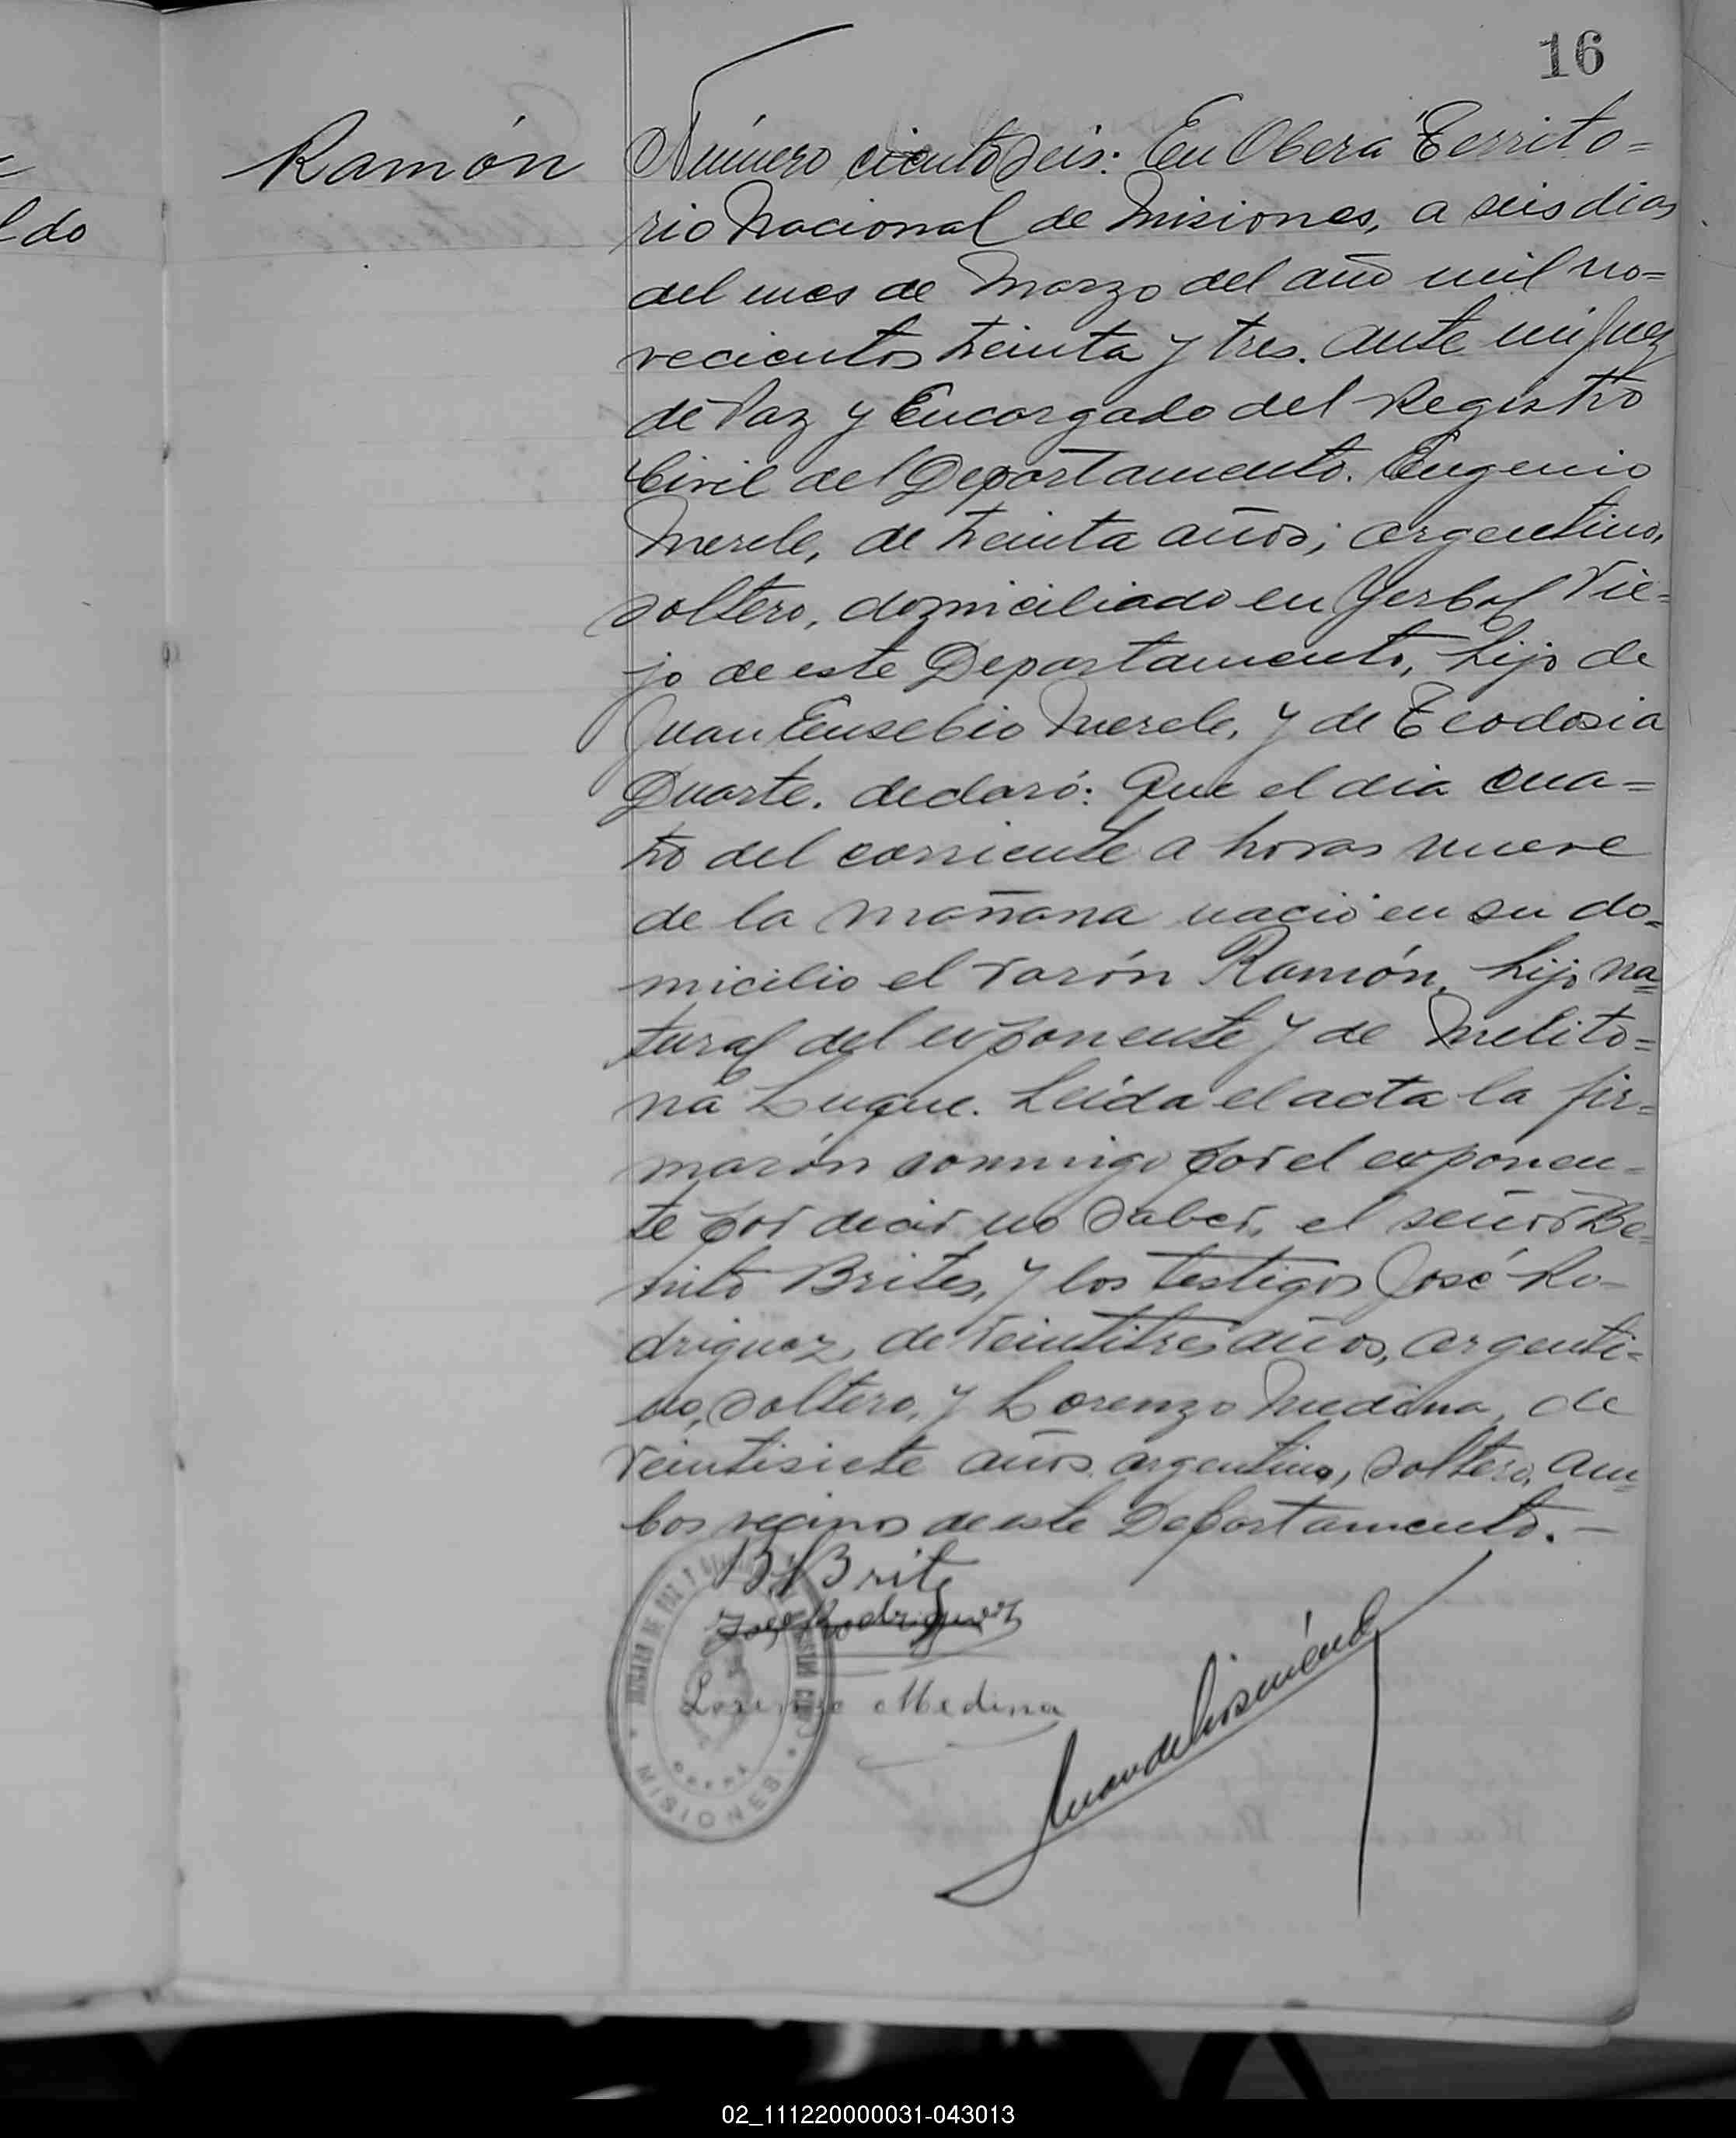 16
Ramón
ldo
Número ciento seis: En Oberá Territo=
rio Nacional de Misiones, a seis dias
del mes de Marzo del año mil no=
vecientos treinta y tres. ante mi Juez
de Paz y Encargado del Registro
Civil del Departamento. Eugenio
Merele, de treinta años; argentino,
soltero, domiciliado en Yerbal Vie=
jo de este Departamento, hijo de
Juan Eusebio Merele, y de Teodosia
Duarte. declaró: Que el dia cua=
tro del corriente a horas nueve
de la mañana nació en su do=
micilio el varón Ramón, hijo na=
tural del exponente y de Melito=
na Luque. Leída el acta la fir=
marón conmigo por el exponen=
te por decir no saber, el señor Be=
nito Brites, y los testigos José Ro-
driguez, de veintitres años, argenti=
no, soltero, y Lorenzo Medina, de
veintisiete años argentino, soltero, am=
bos vecinos de este Departamento. —
B. Brite
José Rodriguez
Lorenzo Medina
MISIONES
02_111220000031-043013